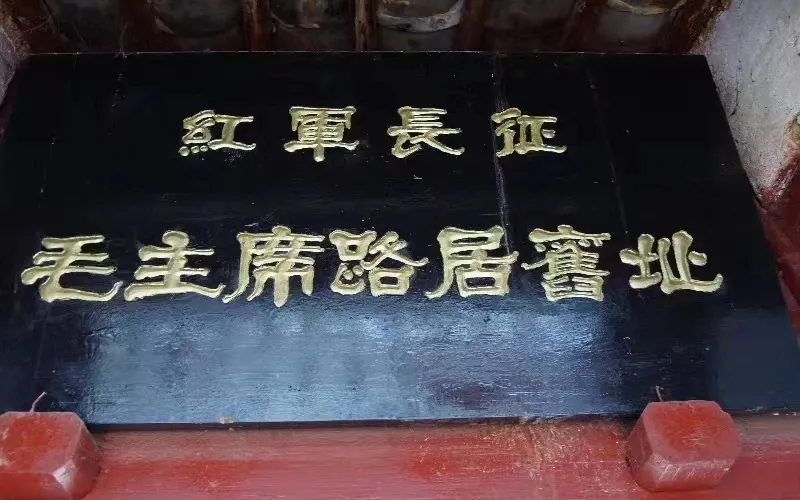 紅軍長征
毛主席路居舊址